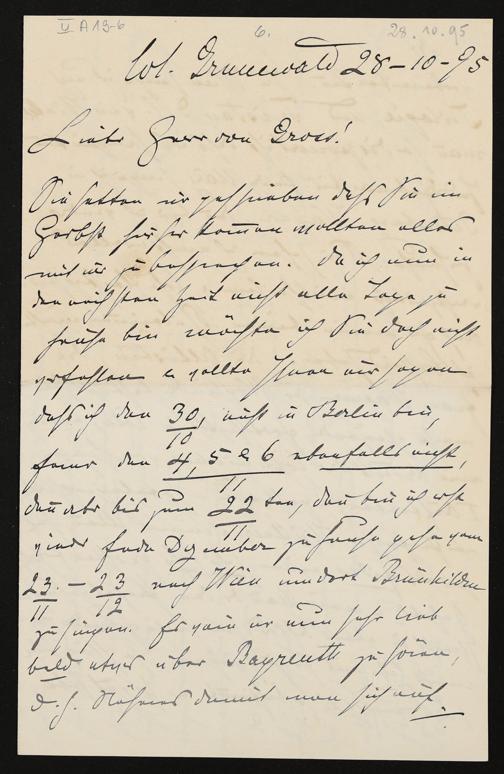 V A 13-6
6.
28.10.95
Col. Grunewald 28-10-95
Lieber Herr von Gross!
Sie hatten mir geschrieben dass Sie im
Herbst hierher kommen wollten alles
mit mir zu besprechen. Da ich nun in
der nächsten Zeit nicht alle Tage zu
Hause bin möchte ich Sie doch nicht
verfehlen & wollte Ihnen nur sagen
dass ich den 30/10, nicht in Berlin bin,
ferner den 4, 5 & 6/11 ebenfalls nicht,
dann aber bis zum 22/11 ten, dann bin ich erst
wieder Ende Dezember zu Hause gehe vom
23/11. – 23/12 nach Wien um dort Brünhilden
zu singen. Es wäre mir nun sehr lieb
bald etwas über Bayreuth zu hören,
d. h. Näheres damit man sich auf